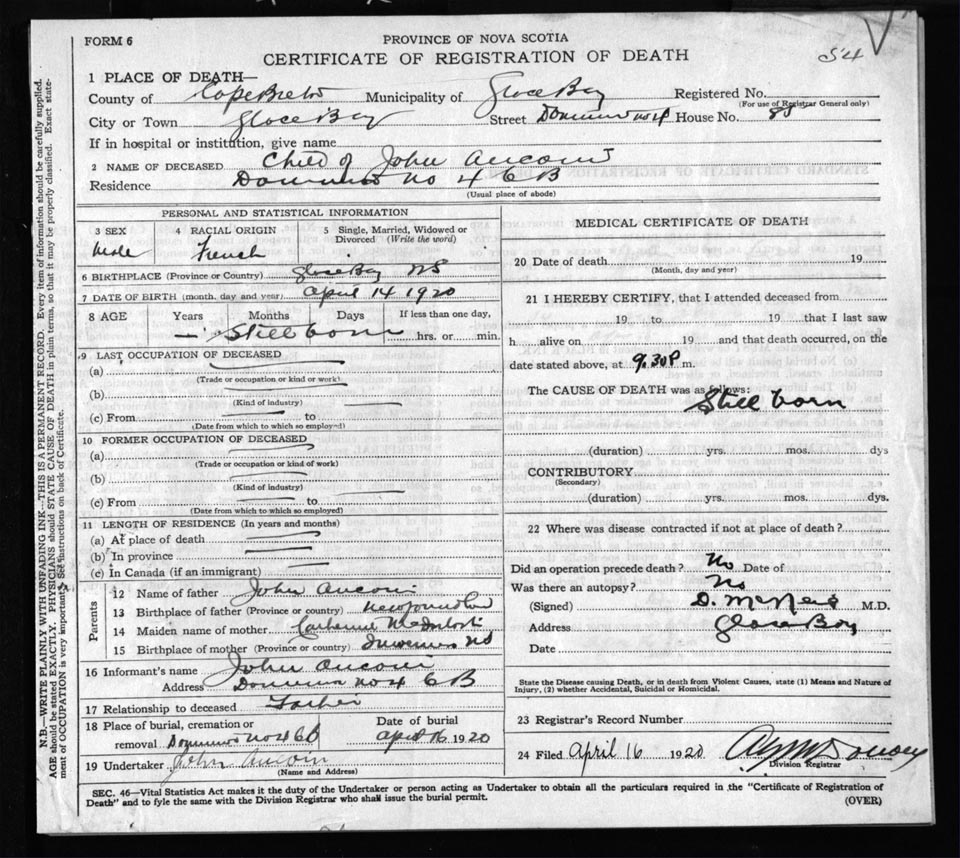 FORM 6
PROVINCE OF NOVA SCOTIA
CERTIFICATE OF REGISTRATION OF DEATH
54
1 PLACE OF DEATH—
County of Cape Breton Municipality of Glace Bay Registered No.
(For use of Registrar General only)
City or Town Glace Bay Street Dominion No 4 House No. 88
If in hospital or institution, give name
2 NAME OF DECEASED Child of John Aucoin
Residence Dominion No 4 G B
(Usual place of abode)
PERSONAL AND STATISTICAL INFORMATION
3 SEX 4 RACIAL ORIGIN 5 Single, Married, Widowed or
Divorced (Write the word)
Male French
6 BIRTHPLACE (Province or Country) Glace Bay NS
7 DATE OF BIRTH (month, day and year) April 14 1920
8 AGE Years Months Days If less than one day,
— Still born hrs. or min.
9 LAST OCCUPATION OF DECEASED
(a)
(Trade or occupation or kind of work)
(b)
(Kind of industry)
(c) From to
(Date from which to which so employed)
10 FORMER OCCUPATION OF DECEASED
(a)
(Trade or occupation or kind of work)
(b)
(Kind of industry)
(c) From to
(Date from which to which so employed)
11 LENGTH OF RESIDENCE (In years and months)
(a) At place of death
(b) In province
(c) In Canada (if an immigrant)
Parents
12 Name of father John Aucoin
13 Birthplace of father (Province or country) Newfoundland
14 Maiden name of mother Catherine McIntosh
15 Birthplace of mother (Province or country) Inverness NS
16 Informant's name John Aucoin
Address Dominion No 4 G B
17 Relationship to deceased Father
18 Place of burial, cremation or Date of burial
removal Dominion No 4 G B April 16 1920
19 Undertaker John Aucoin
(Name and Address)
MEDICAL CERTIFICATE OF DEATH
20 Date of death 19
(Month, day and year)
21 I HEREBY CERTIFY, that I attended deceased from
19 to 19 that I last saw
h alive on 19 and that death occurred, on the
date stated above, at 9.30 P m.
The CAUSE OF DEATH was as follows:
Still born
(duration) yrs. mos. dys
CONTRIBUTORY
(Secondary)
(duration) yrs. mos. dys.
22 Where was disease contracted if not at place of death?
Did an operation precede death? No Date of
Was there an autopsy? No
(Signed) D. McNeil M.D.
Address Glace Bay
Date
State the Disease causing Death, or in death from Violent Causes, state (1) Means and Nature of
Injury, (2) whether Accidental, Suicidal or Homicidal.
23 Registrar's Record Number
24 Filed April 16 1920
Division Registrar
SEC. 46—Vital Statistics Act makes it the duty of the Undertaker or person acting as Undertaker to obtain all the particulars required in the "Certificate of Registration of
Death" and to fyle the same with the Division Registrar who shall issue the burial permit.
(OVER)
N.B.—WRITE PLAINLY WITH UNFADING INK—THIS IS A PERMANENT RECORD. Every item of information should be carefully supplied.
AGE should be stated EXACTLY. PHYSICIANS should STATE CAUSE OF DEATH in plain terms, so that it may be properly classified. Exact state-
ment of OCCUPATION is very important. See instructions on back of Certificate.